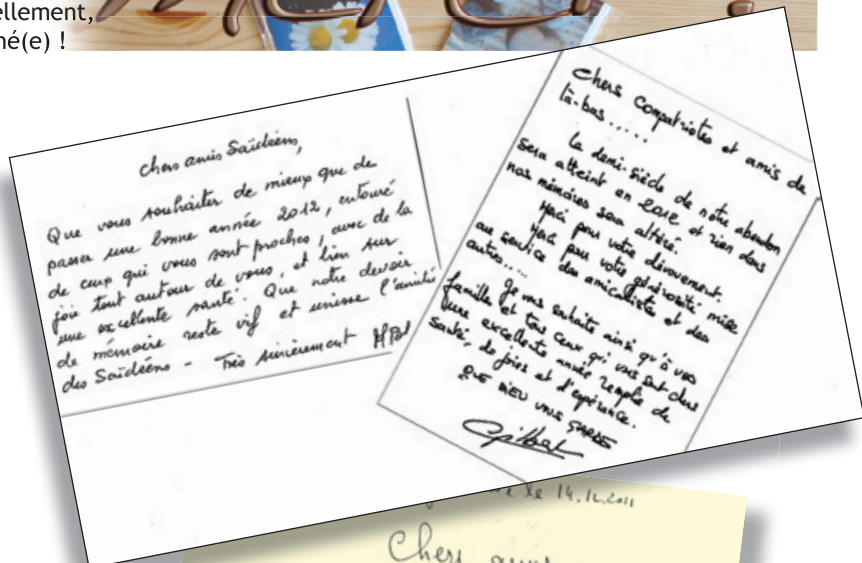 ellement,
né(e) !
Chers amis Saïdéens,
Que vous souhaiter de mieux que de
passer une bonne année 2012, entouré
de ceux qui vous sont proches, avec de la
joie tout autour de vous, et bien sur
une excellente santé. Que notre devoir
de mémoire reste vif et unisse l'amitié
des Saïdéens - Très sincèrement
Chers compatriotes et amis de
là-bas .....
Le demi-siècle de notre abandon
sera atteint en 2012 et rien dans
nos mémoires sera altéré.
Merci pour votre dévouement.
Merci pour votre générosité mise
au service des amicalistes et des
autres....
Je vous souhaite ainsi qu'à vos
famille et tous ceux qui vous sont chers
une excellente année remplie de
santé, de joies et d'espérance.
QUE DIEU VOUS GARDE
Gilbert
le 14.12.2011
Chers amis